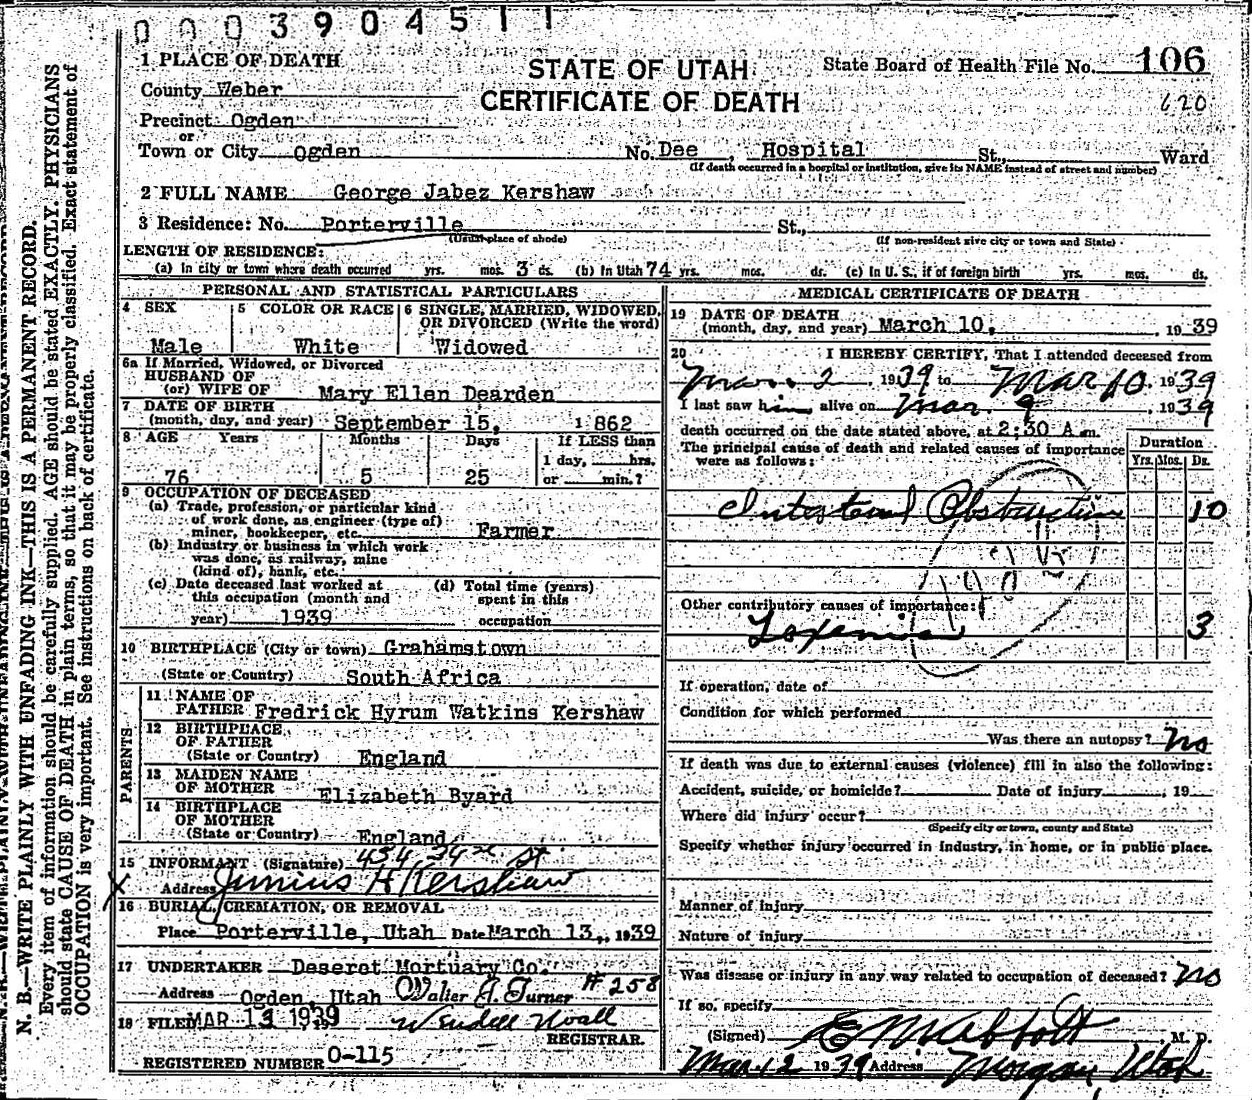 0003904511
1 PLACE OF DEATH
STATE OF UTAH
State Board of Health File No. 106
County Weber
CERTIFICATE OF DEATH
620
Precinct Ogden
or
Town or City Ogden No. Dee Hospital St., Ward
(If death occurred in a hospital or institution, give its NAME instead of street and number)
2 FULL NAME George Jabez Kershaw
3 Residence: No. Porterville St.,
(Usual place of abode) (If non-resident give city or town and State)
LENGTH OF RESIDENCE:
(a) In city or town where death occurred yrs. mos. 3 ds. (b) In Utah 74 yrs. mos. ds. (c) In U. S., if of foreign birth yrs. mos. ds.
PERSONAL AND STATISTICAL PARTICULARS
4 SEX 5 COLOR OR RACE 6 SINGLE, MARRIED, WIDOWED, OR DIVORCED (Write the word)
Male White Widowed
6a If Married, Widowed, or Divorced
HUSBAND OF
(or) WIFE OF Mary Ellen Dearden
7 DATE OF BIRTH
(month, day, and year) September 15, 1862
8 AGE Years Months Days If LESS than
1 day, hrs.
76 5 25 or min.?
9 OCCUPATION OF DECEASED
(a) Trade, profession, or particular kind
of work done, as engineer (type of)
miner, bookkeeper, etc. Farmer
(b) Industry or business in which work
was done, as railway, mine
(kind of), bank, etc.
(c) Date deceased last worked at (d) Total time (years)
this occupation (month and spent in this
year) 1939 occupation
10 BIRTHPLACE (City or town) Grahamstown
(State or Country) South Africa
PARENTS
11 NAME OF
FATHER Fredrick Hyrum Watkins Kershaw
12 BIRTHPLACE
OF FATHER
(State or Country) England
13 MAIDEN NAME
OF MOTHER Elizabeth Byard
14 BIRTHPLACE
OF MOTHER
(State or Country) England
15 INFORMANT (Signature) 434 34 St.
X Address Junius H Kershaw
16 BURIAL, CREMATION, OR REMOVAL
Place Porterville, Utah Date March 13, 1939
17 UNDERTAKER Deseret Mortuary Co.
#258
Address Ogden, Utah Walter J. Turner
18 FILED MAR 13 1939 Wendell Noall
REGISTRAR.
REGISTERED NUMBER 0-115
MEDICAL CERTIFICATE OF DEATH
19 DATE OF DEATH
(month, day, and year) March 10, 1939
20 I HEREBY CERTIFY, That I attended deceased from
Mar. 2, 1939 to Mar 10, 1939
I last saw him alive on Mar. 9 1939
death occurred on the date stated above, at 2:30 A m.
The principal cause of death and related causes of importance
were as follows:
Duration
Yrs. Mos. Ds.
Intestinal Obstruction 10
Other contributory causes of importance:
Toxemia 3
If operation, date of
Condition for which performed
Was there an autopsy? No
If death was due to external causes (violence) fill in also the following:
Accident, suicide, or homicide? Date of injury , 19
Where did injury occur?
(Specify city or town, county and State)
Specify whether injury occurred in industry, in home, or in public place.
Manner of injury
Nature of injury
Was disease or injury in any way related to occupation of deceased? No
If so, specify
(Signed) E M Abbott, M. D.
Mar. 12 1939 Address Morgan, Utah
N. B.—WRITE PLAINLY WITH UNFADING INK—THIS IS A PERMANENT RECORD.
Every item of information should be carefully supplied. AGE should be stated EXACTLY. PHYSICIANS
should state CAUSE OF DEATH in plain terms, so that it may be properly classified. Exact statement of
OCCUPATION is very important. See instructions on back of certificate.